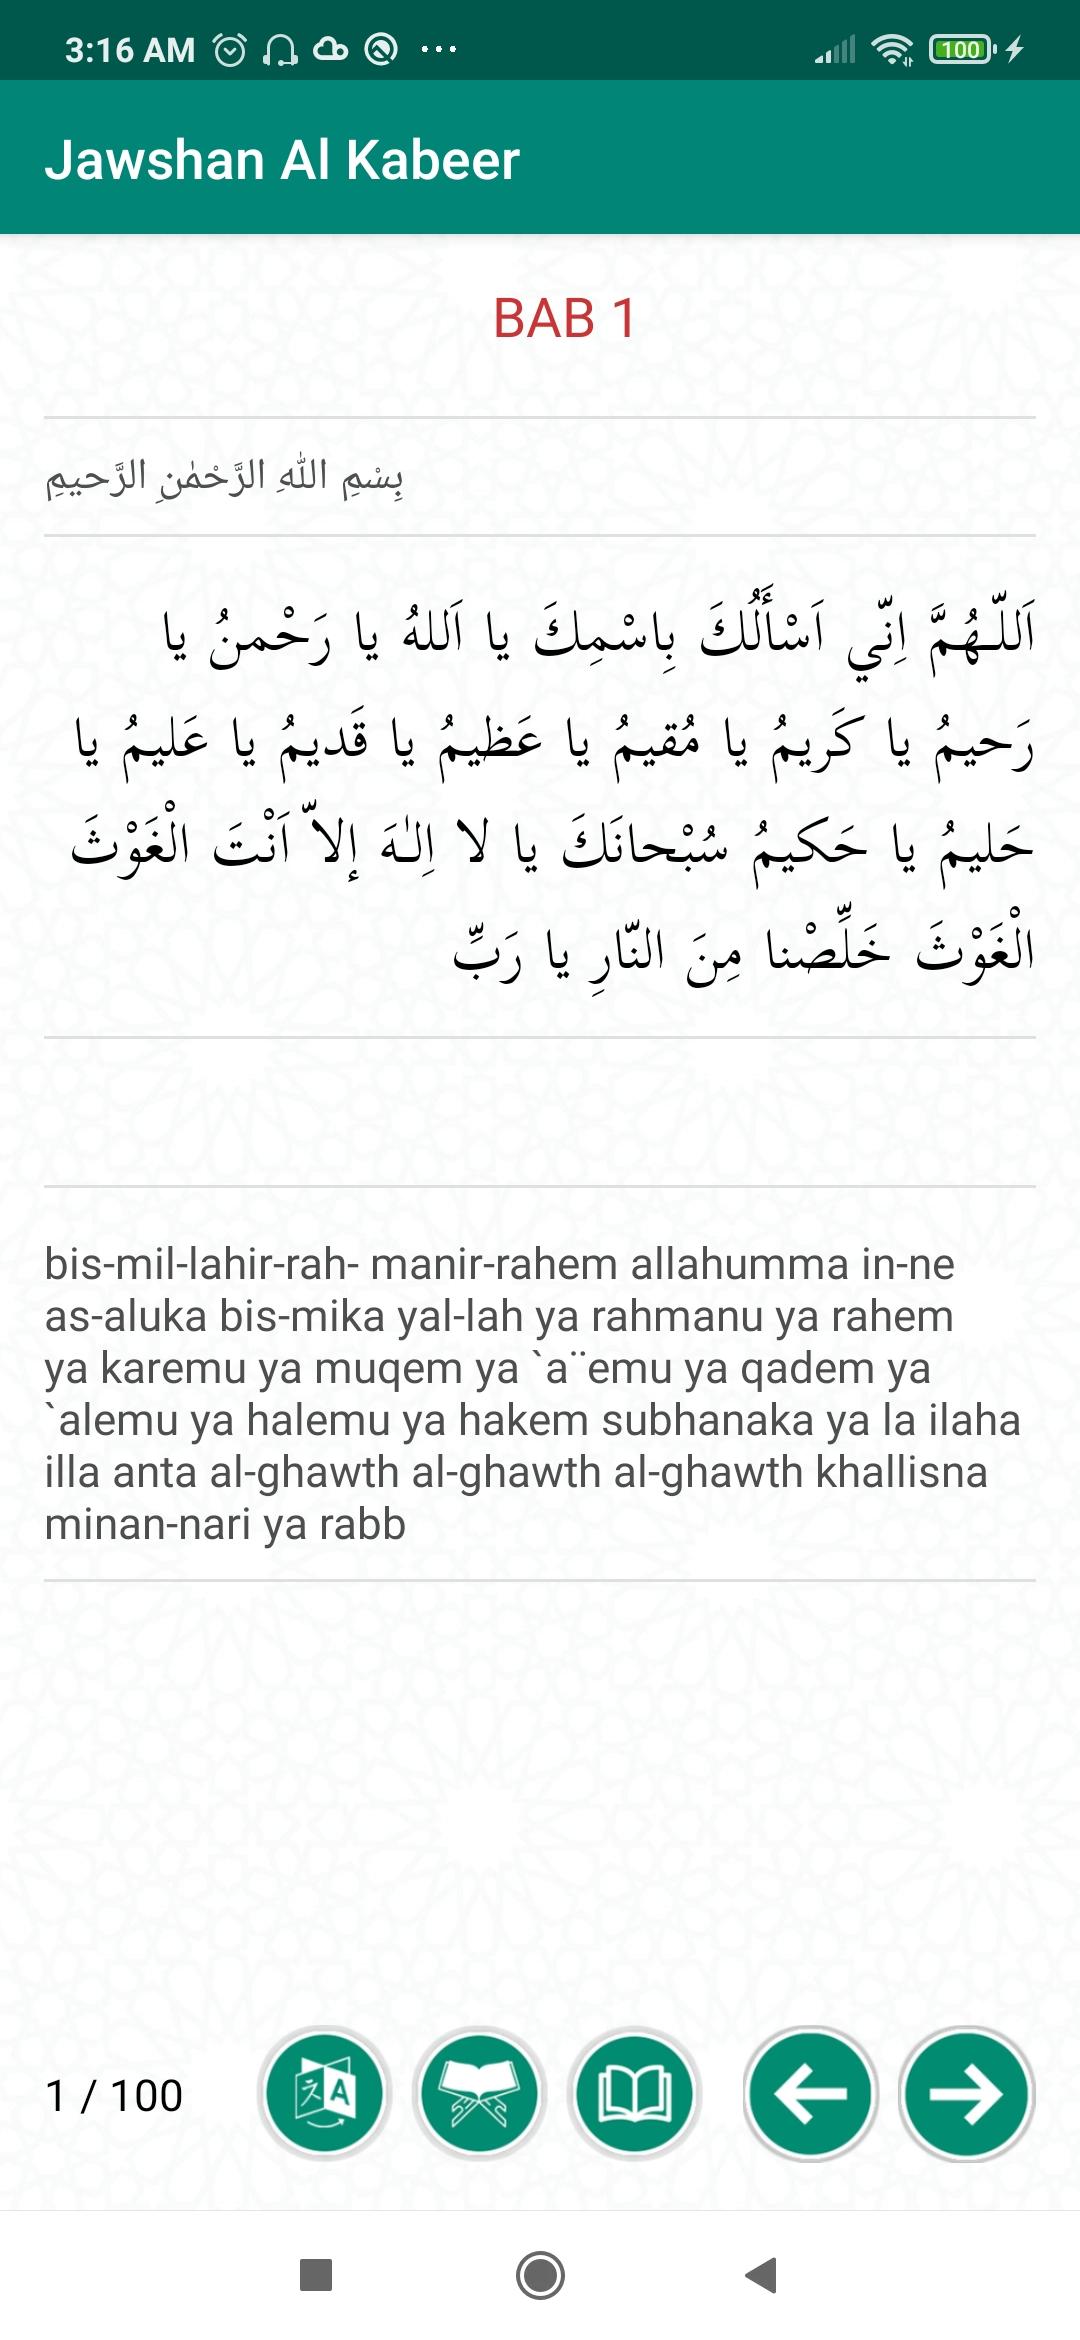 3:16 AM
100
Jawshan Al Kabeer
BAB 1
بِسْمِ اللهِ الرَّحْمٰنِ الرَّحيمِ
اَللّـهُمَّ اِنّي اَسْأَلُكَ بِاسْمِكَ يا اَللهُ يا رَحْمنُ يا
رَحيمُ يا كَريمُ يا مُقيمُ يا عَظيمُ يا قَديمُ يا عَليمُ يا
حَليمُ يا حَكيمُ سُبْحانَكَ يا لا اِلـٰهَ إلاّ اَنْتَ الْغَوْثَ
الْغَوْثَ خَلِّصْنا مِنَ النّارِ يا رَبِّ
bis-mil-lahir-rah- manir-rahem allahumma in-ne
as-aluka bis-mika yal-lah ya rahmanu ya rahem
ya karemu ya muqem ya `a¨emu ya qadem ya
`alemu ya halemu ya hakem subhanaka ya la ilaha
illa anta al-ghawth al-ghawth al-ghawth khallisna
minan-nari ya rabb
1 / 100